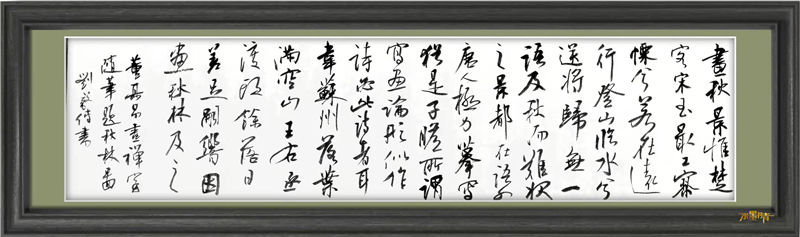 畫秋景惟楚
客宋玉最工寥
慄兮若在遠
行登山臨水兮
送將歸無一
語及秋而難狀
之景都在語外
唐人極力摹寫
猶是子瞻所謂
寫畫論形似作
詩必此詩者耳
韋蘇州落葉
滿空山王右丞
渡頭餘落日
差足嗣響因
畫秋林及之
董其昌畫禪室
隨筆題秋林圖
劉書